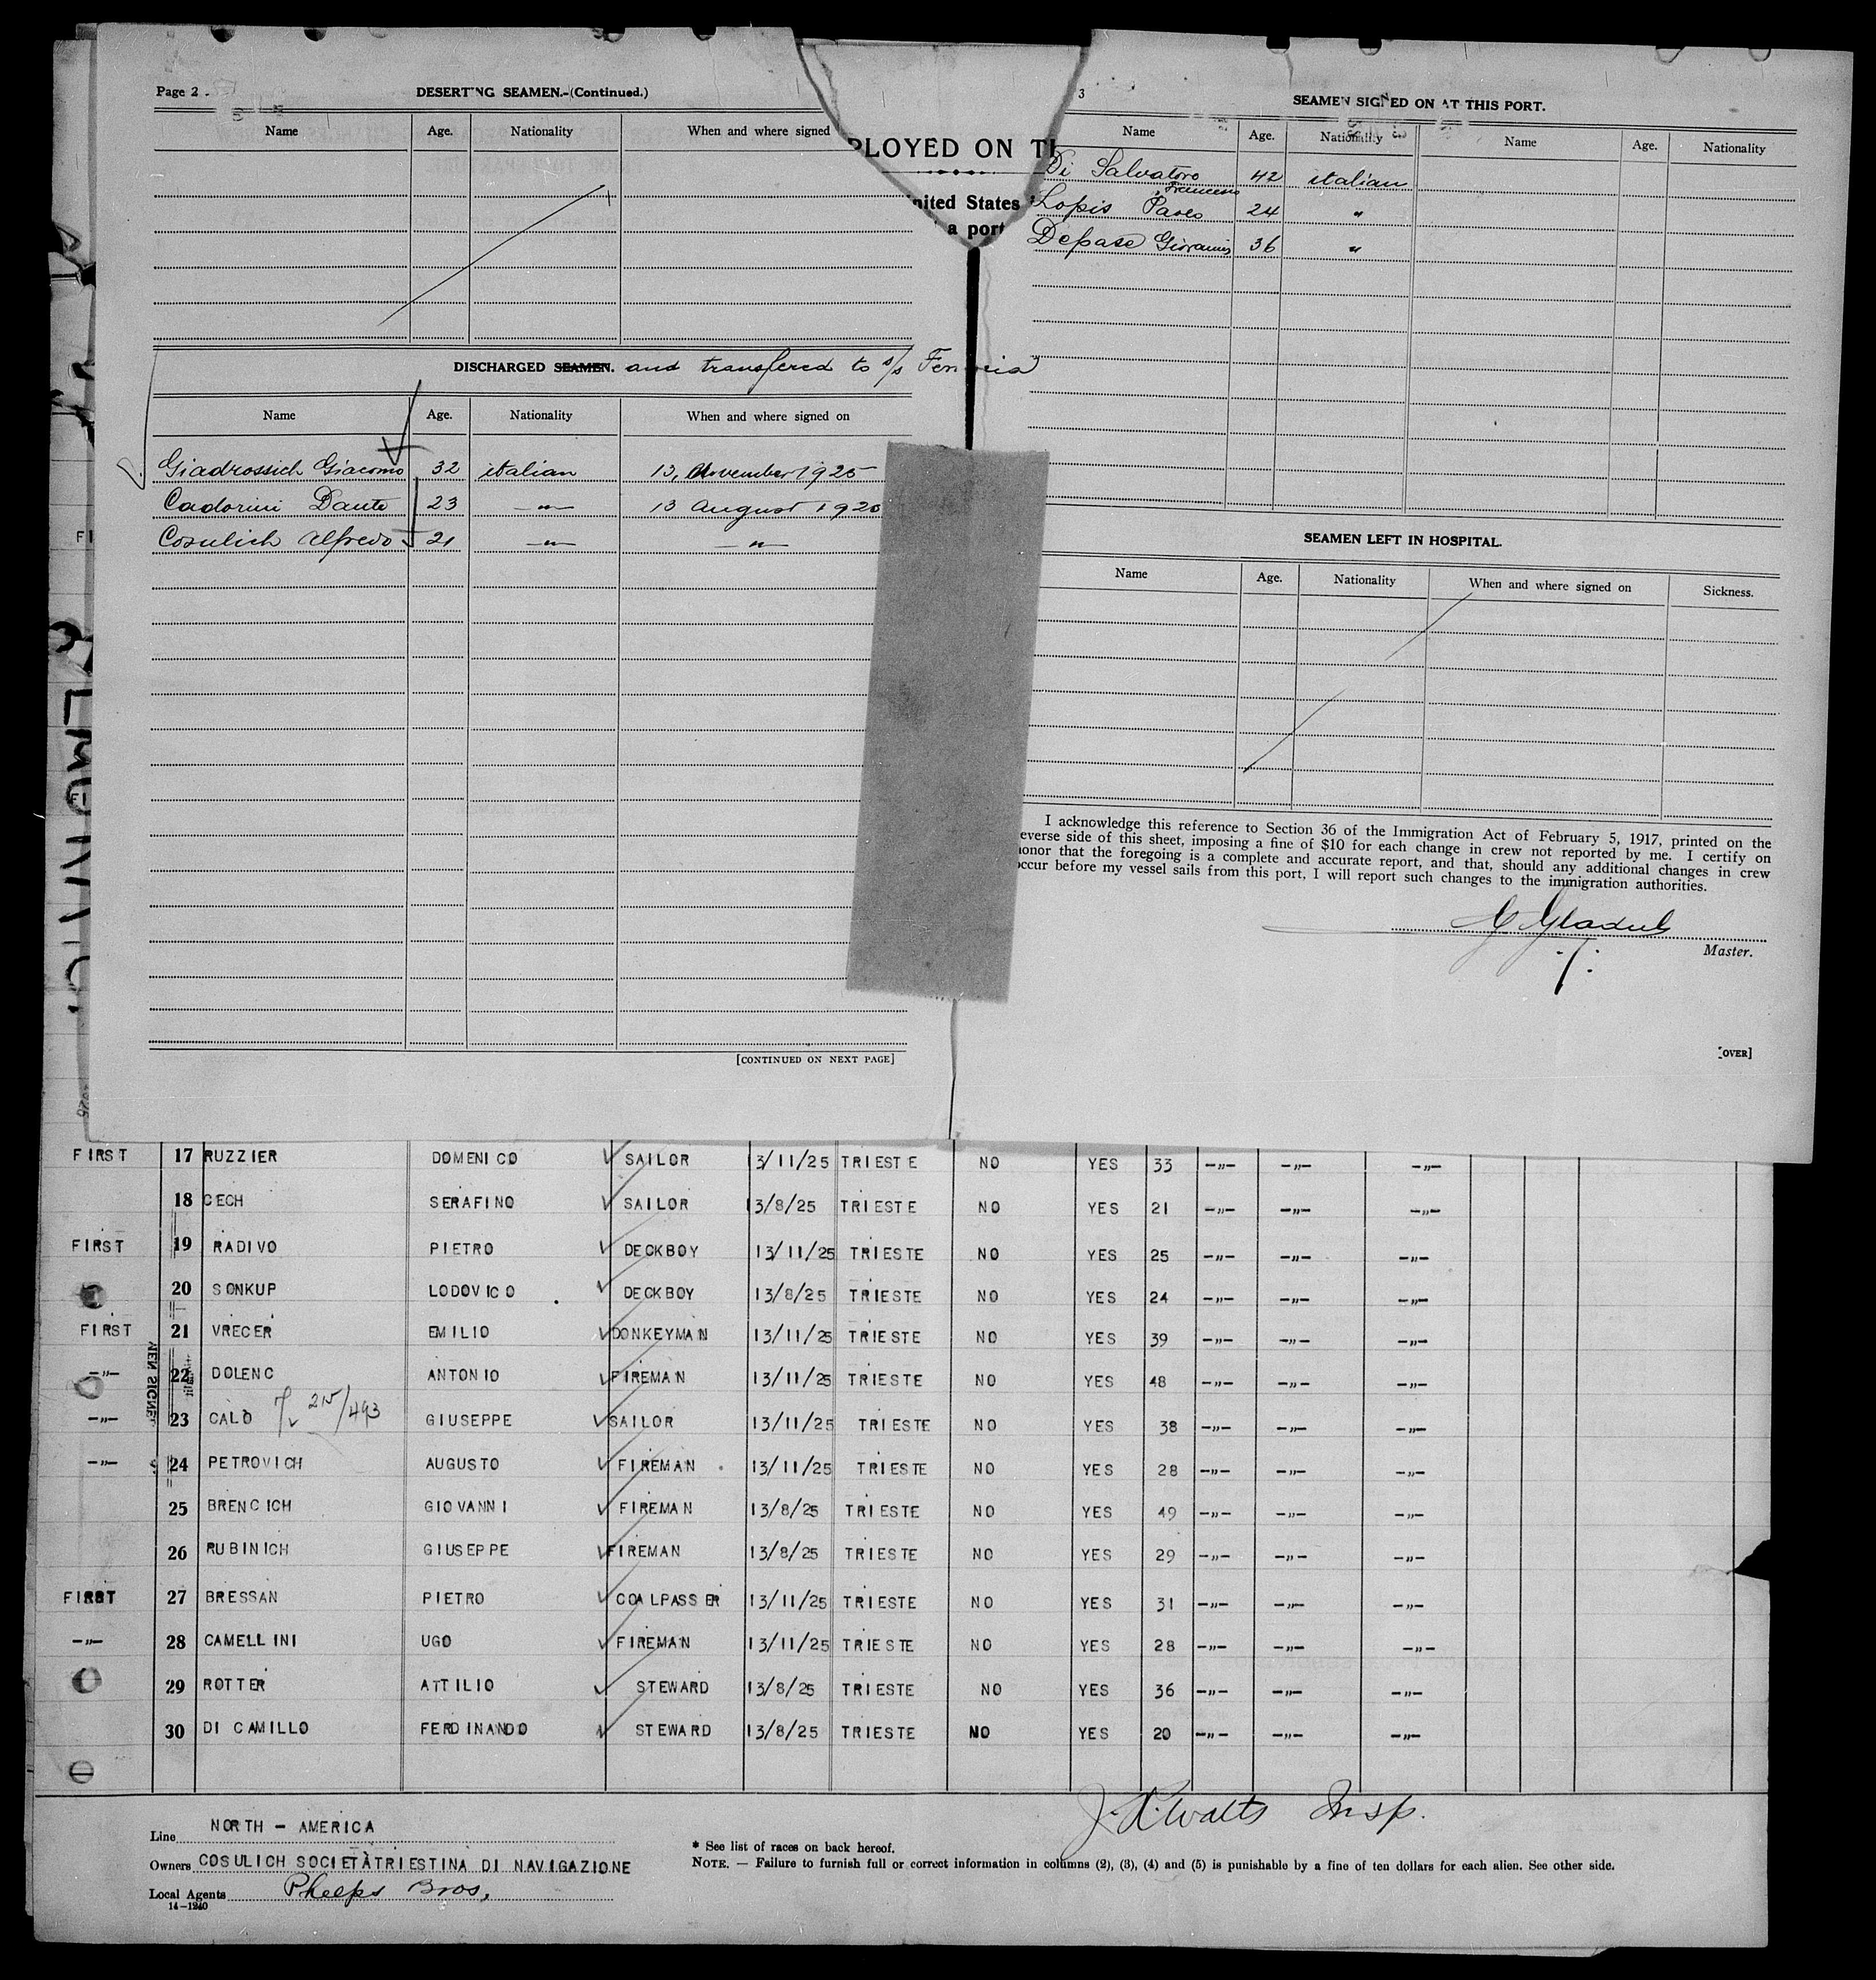 Page 2
DESERTING SEAMEN.-(Continued.)
Name Age. Nationality When and where signed
PLOYED ON TH
nited States
a port
DISCHARGED SEAMEN. and transfered to s/s
Name Age. Nationality When and where signed on
Giadrossich Giacomo 32 italian 13, November 1925
Cadorini Dante 23 —"— 13 August 1925
Cosulich Alfredo 21 —"— —"—
[CONTINUED ON NEXT PAGE]
3
SEAMEN SIGNED ON AT THIS PORT.
Name Age. Nationality Name Age. Nationality
Di Salvatore Francesco 42 italian
Lopis Paolo 24 "
Depase Giovanni 36 "
SEAMEN LEFT IN HOSPITAL.
Name Age. Nationality When and where signed on Sickness.
I acknowledge this reference to Section 36 of the Immigration Act of February 5, 1917, printed on the
everse side of this sheet, imposing a fine of $10 for each change in crew not reported by me. I certify on
honor that the foregoing is a complete and accurate report, and that, should any additional changes in crew
occur before my vessel sails from this port, I will report such changes to the immigration authorities.
Master.
[OVER]
FIRST 17 RUZZIER DOMENICO SAILOR 13/11/25 TRIESTE NO YES 33 —"— —"— —"—
18 CECH SERAFINO SAILOR 13/8/25 TRIESTE NO YES 21 —"— —"— —"—
FIRST 19 RADIVO PIETRO DECKBOY 13/11/25 TRIESTE NO YES 25 —"— —"— —"—
20 SONKUP LODOVICO DECKBOY 13/8/25 TRIESTE NO YES 24 —"— —"— —"—
FIRST 21 VRECER EMILIO DONKEYMAN 13/11/25 TRIESTE NO YES 39 —"— —"— —"—
—"— 22 DOLENC ANTONIO FIREMAN 13/11/25 TRIESTE NO YES 48 —"— —"— —"—
—"— 23 CALÒ 215/493 GIUSEPPE SAILOR 13/11/25 TRIESTE NO YES 38 —"— —"— —"—
—"— 24 PETROVICH AUGUSTO FIREMAN 13/11/25 TRIESTE NO YES 28 —"— —"— —"—
25 BRENCICH GIOVANNI FIREMAN 13/8/25 TRIESTE NO YES 49 —"— —"— —"—
26 RUBINICH GIUSEPPE FIREMAN 13/8/25 TRIESTE NO YES 29 —"— —"— —"—
FIRST 27 BRESSAN PIETRO COALPASSER 13/11/25 TRIESTE NO YES 31 —"— —"— —"—
—"— 28 CAMELLINI UGO FIREMAN 13/11/25 TRIESTE NO YES 28 —"— —"— —"—
29 ROTTER ATTILIO STEWARD 13/8/25 TRIESTE NO YES 36 —"— —"— —"—
30 DI CAMILLO FERDINANDO STEWARD 13/8/25 TRIESTE NO YES 20 —"— —"— —"—
J. A. Watts Insp.
Line NORTH - AMERICA
Owners COSULICH SOCIETÀ TRIESTINA DI NAVIGAZIONE
Local Agents Phelps Bros,
14-1240
* See list of races on back hereof.
NOTE. — Failure to furnish full or correct information in columns (2), (3), (4) and (5) is punishable by a fine of ten dollars for each alien. See other side.